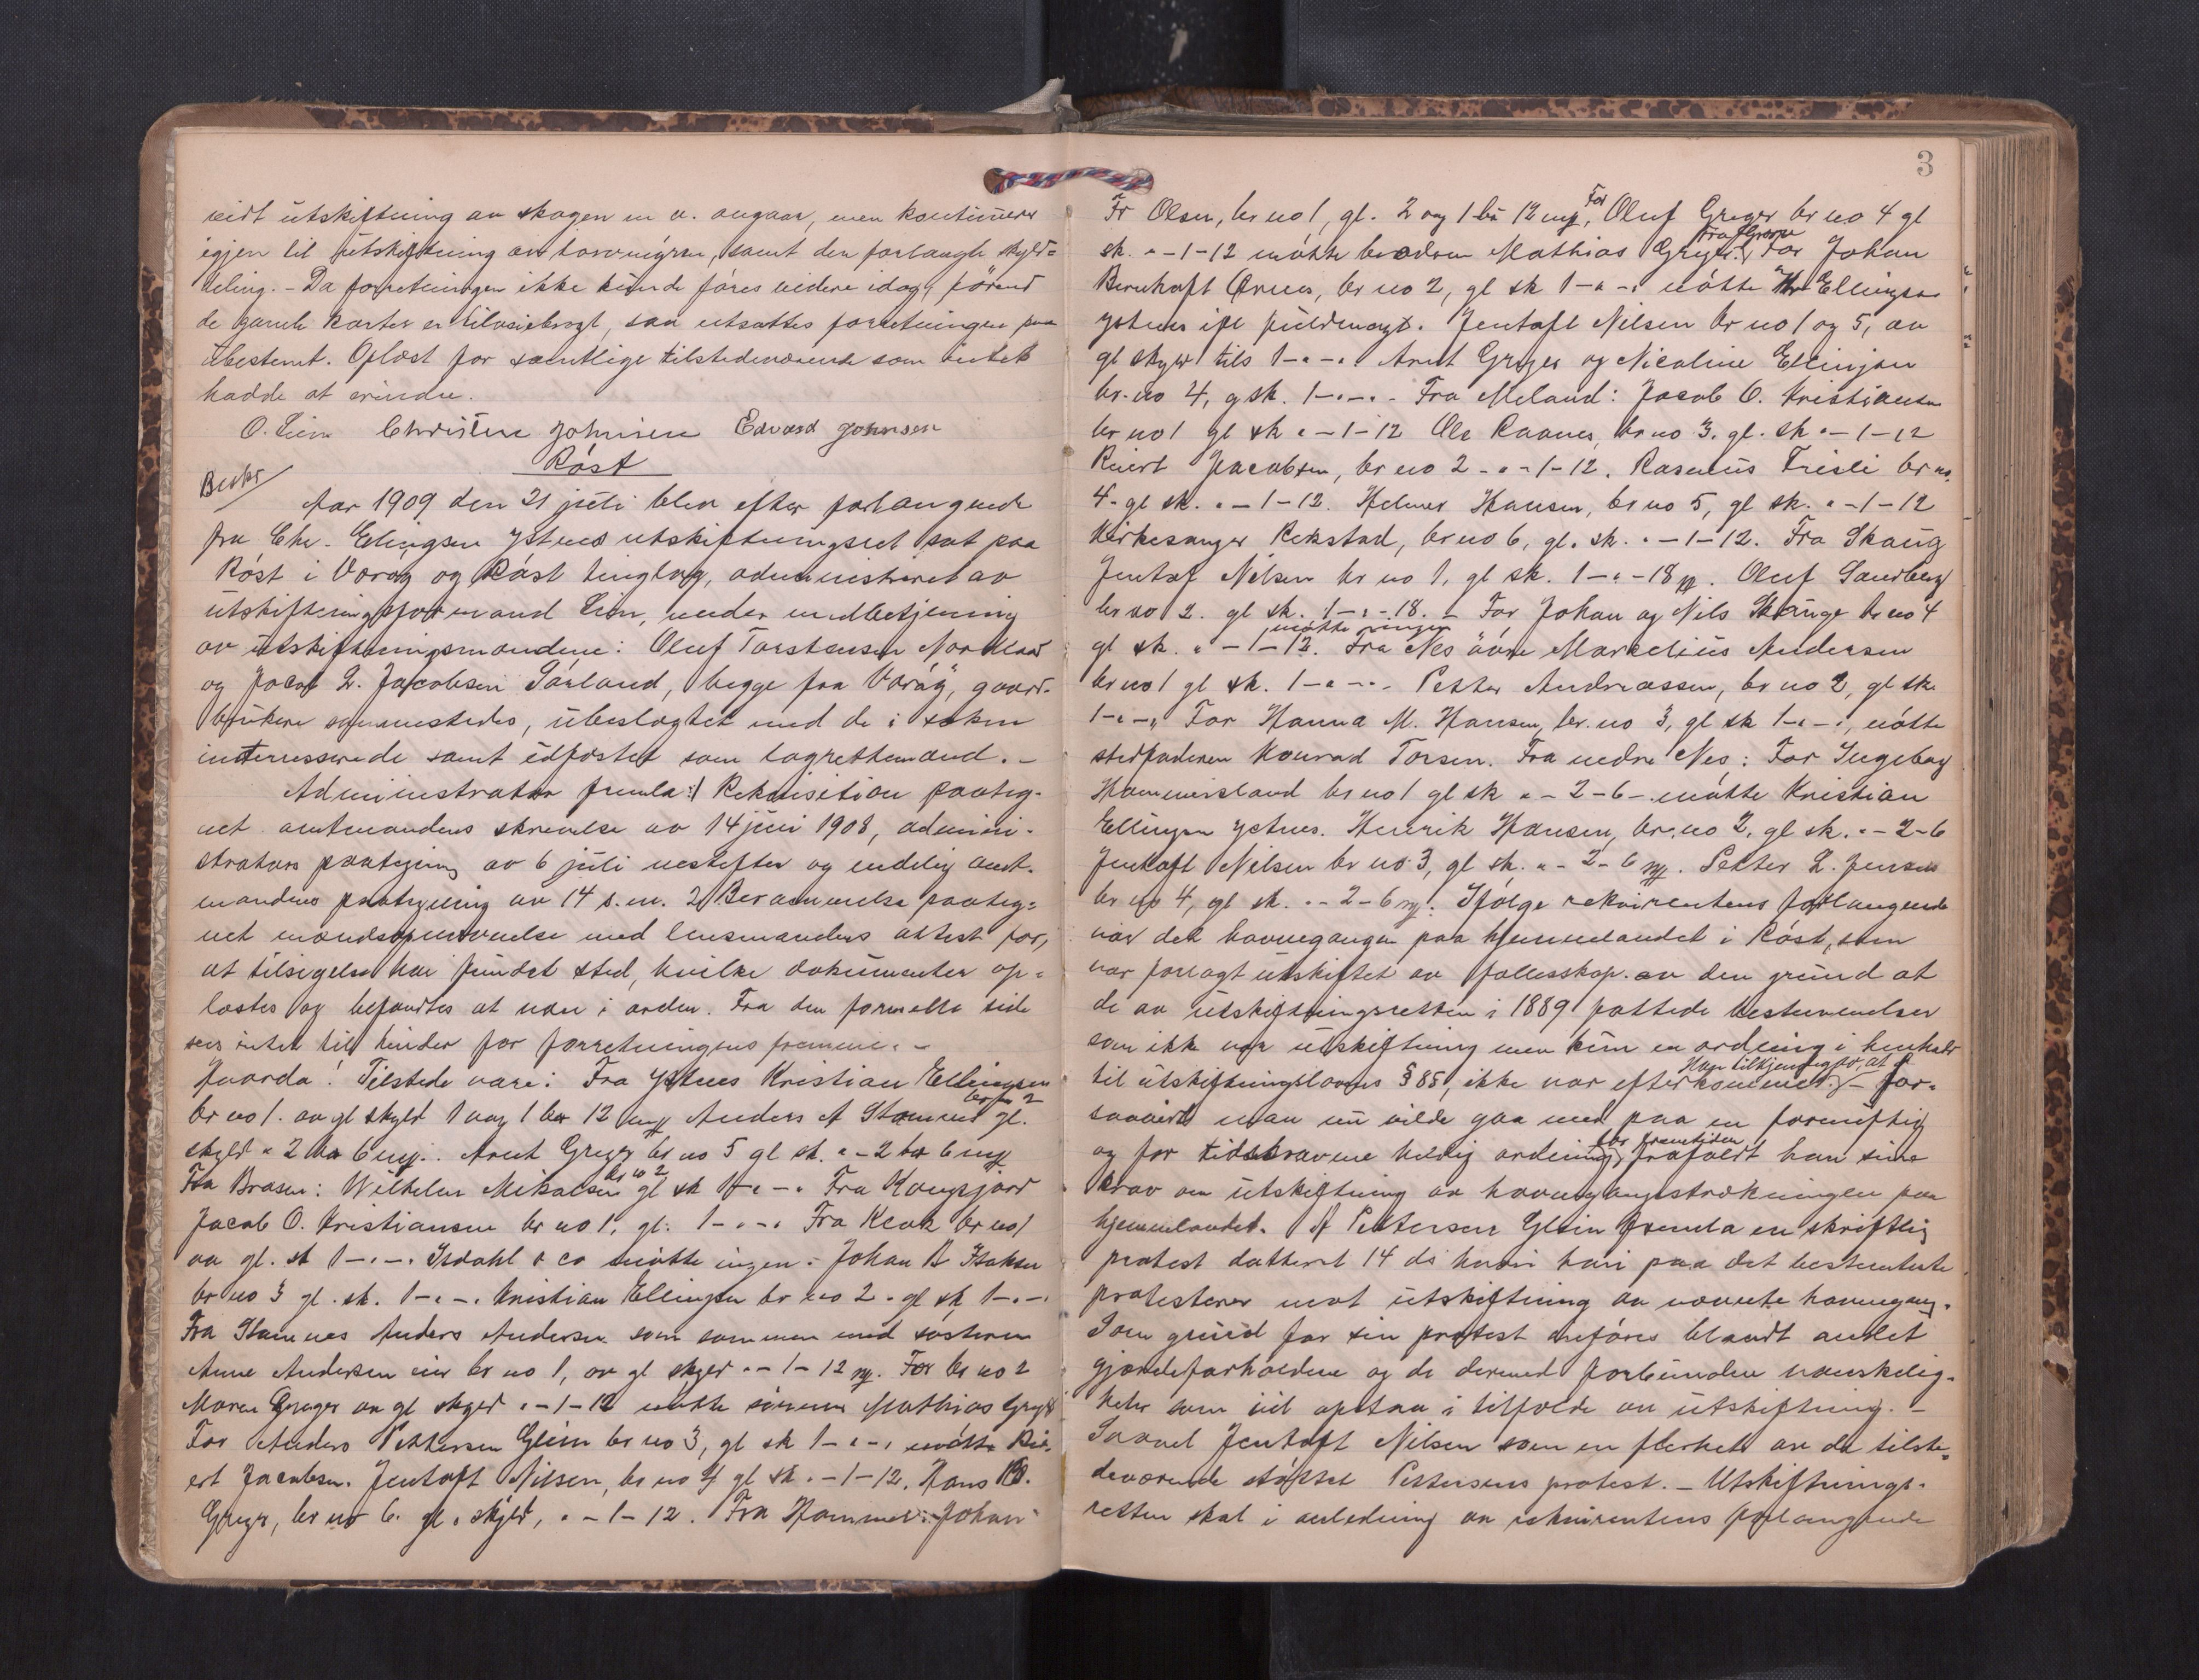 vidt utskiftning av skogen m v. angaar, men kontinuerer
igjen til utskiftning av torvmyren, samt den forlangte skyld=
deling. - Da forretningen ikke kunde føres videre idag, førend
de gamle karter er tilveiebragt, saa utsattes forretningen paa
ubestemt. Oplæst for samtlige tilstedeværende som intet
hadde at erindre.
O. Lien Christen Johnsen Edvard Johnsen
Røst
Beskr
Aar 1909 den 21 juli blev efter forlangende
fra Chr. Elingsen Ystnes utskiftningsret sat paa
Røst i Værøy og Røst tinglag, administreret av
utskiftningsformand Lien, under medbetjening
av utskiftningsmændene: Oluf Torstensen Nordland
og Jacob L. Jacobsen Sørland, begge fra Værøy, gaard-
brukere sammesteds, ubeslægtet med de i saken
interesserede samt edfæstet som lagrettemænd. -
Administrator fremla: 1/ Rekvisition paateg-
net amtmandens skrivelse av 14 juni 1908, admini-
strators paategning av 6 juli næstefter og endelig amt-
mandens paategning av 14 s.m. 2/ Berammelse paateg=
net mændsopnævnelse med lensmandens attest for,
at tilsigelse har fundet sted, hvilke dokumenter op=
læstes og befandtes at være i orden. Fra den formelle side
sees intet til hinder for forretningens fremme. -
Hvorda! Tilstede var: Fra Ystnes Kristian Ellingsen
br no 1. av gl skyld 1 vog 1 br 12 mg Anders A Stamnes br no 2 gl.
skyld " 2 br 6 mg. Arnt Greger br no 5 gl sk. " - 2 br 6 mg
Fra Brasen: Wilhelm Mikalsen br no 2 gl sk 1 - " - " Fra Kongsjord
Jacob O. Kristiansen br no 1, gl. 1 - " - " Fra Klak br no 1
av gl. sk 1 - " - " Isdahl & co møtte ingen. Johan B Isaksen
br no 3 gl. sk. 1 - " - " Kristian Ellingsen br no 2 - gl sk 1 - " - "
Fra Stamnes Anders Andersen som sammen med søsteren
Anne Andersen eier br no 1, av gl skyld " - 1 - 12 mg. For br no 2
Maren Greger av gl skyld " - 1 - 12 møtte sønnen Mathias Greger
For Anders Pettersen Glein br no 3, gl sk 1 - " - " møtte Ri-
ert Jacobsen. Jentoft Nilsen, br no 4 gl sk. " - 1 - 12. Hans
Greger, br no 6. gl. skyld, " - 1 - 12. Fra Hammer: Johan
3
Fr Olsen, br no 1, gl. 2 vog 1 br 12 mg, For Oluf Greger br no 4 gl
sk. " - 1 - 12 møtte broderen Mathias Greger. For Johan
Bernhoft Ørnes, br no 2, gl sk 1 - " - " møtte Kr Ellingsen
ystnes ifl fuldmagt. Jentoft Nilsen br no 1 og 5, av
gl skyld tils 1 - " - " Arnt Greger og Nicoline Ellingsen
br. no 4, g sk. 1 - " - " - Fra Meland: Jacob O. Kristiansen
br no 1 gl sk " - 1 - 12 Ole Raanes, br no 3. gl. sk " - 1 - 12
Riert Jacobsen, br no 2 - " - 1 - 12. Rasmus Frisli br no
4 - gl sk. " - 1 - 12. Helmer Hansen, br no 5, gl sk. " - 1 - 12
Kirkesanger Rekstad, br no 6, gl. sk. " - 1 - 12. Fra Skaug
Jentof Nilsen br no 1, gl sk. 1 - " - 18 mg. Oluf Sandberg
br no 2. gl sk. 1 - " - 18. - For Johan og Nils Skauge br no 4
gl sk. " - 1 - 12. møtte ingen Fra Nes øvre Markelius Andersen
br no 1 gl sk. 1 - " - " Petter Andreassen, br no 2, gl sk.
1 - " - " For Hanna M. Hansen, br. no 3, gl sk 1 - " - ", møtte
stedfaderen Konrad Torsen. Fra nedre Nes: For Ingeborg
Hammersland br no 1 gl sk " - 2 - 6 - møtte Kristian
Ellingsen Ystnes. Henrik Hansen, br. no 2, gl sk. " - 2 - 6
Jentoft Nilsen br no 3, gl sk. " - 2 - 6 mg. Petter L. Jensen
br no 4, gl sk. " - 2 - 6 mg. Ifølge rekvirentens forlangende
var det havnegangen paa hjemmelandet i Røst, som
var forlagt utskiftet av fællesskap. av den grund at
de av utskiftningsretten i 1889 fattede bestemmelser
som ikke var utskiftning men kun en ordning i henhold
til utskiftningslovens § 85, ikke var efterkommet. - Han tilkjendegav, at for-
saavidt man nu vilde gaa med paa en fornuftig
og for tidskravene heldig ordning for fremtiden, frafaldt han sine
krav om utskiftning av havnegangsstrækningen paa
hjemmelandet. A Pettersen Glein fremla en skriftlig
protest datteret 14 ds hvori han paa det bestemteste
protesterer mot utskiftning av nævnte havnegang.
Som grund for sin protest anføres blandt andet
gjærdeforholdene og de dermed forbundne vanskelig-
heter som vil opstaa i tilfælde av utskiftning. -
Saavel Jentoft Nilsen som en flerhet av de tilste-
deværende støttet Pettersens protest. - Utskiftnings-
retten skal i anledning av rekvirentens forlangende